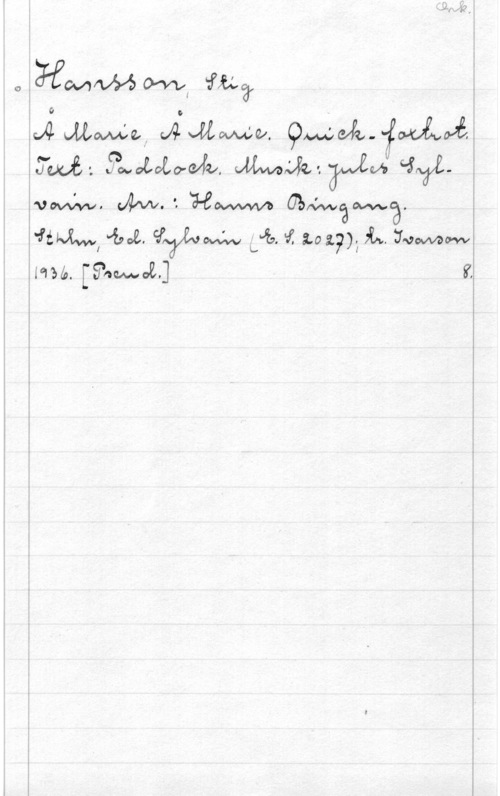 Enk.
Hansson, Stig
Å Marie, Å Marie. Quick-foxtrot.
Text: Paddock. Musik: Jules Syl-
vain. Arr.: Hanns Bingang.
Sthlm, Ed. Sylvain (E. S. 2027); tr. Ivarson
1936. [Pseud.] 8.